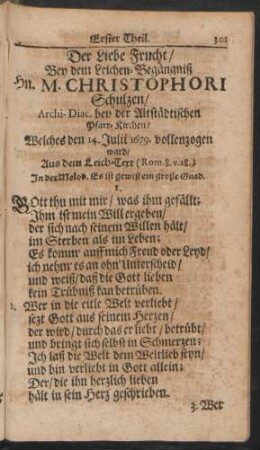 Erster Theil. 301
Der Liebe Frucht/
Bey dem Leichen-Begängniß
Hn. M. CHRISTOPHORI
Schulzen/
Archi-Diac. bey der Altstädtischen
Pfarr-Kirchen/
Welches den 14. Julii 1679. vollenzogen
ward/
Aus dem Leich-Text (Rom. 8. v. 28.)
In der Melod. Es ist gewiß ein große Gnad.
1.
GOtt thu mit mir/ was ihm gefällt;
Ihm ist mein Will ergeben/
der sich nach seinem Willen hält/
im Sterben als im Leben;
Es komm' auff mich Freud oder Leyd/
ich nehm' es an ohn Unterscheid/
und weiß/ daß die Gott lieben
kein Trübniß kan betrüben.
2. Wer in die eitle Welt verliebt/
sezt Gott aus seinem Herzen/
der wird/ durch das er liebt/ betrübt/
und bringt sich selbst in Schmerzen;
Ich laß die Welt dem Weltlieb seyn/
und bin verliebt in Gott allein;
Der/ die ihn herzlich lieben
hält in sein Herz geschrieben.
3. Wer